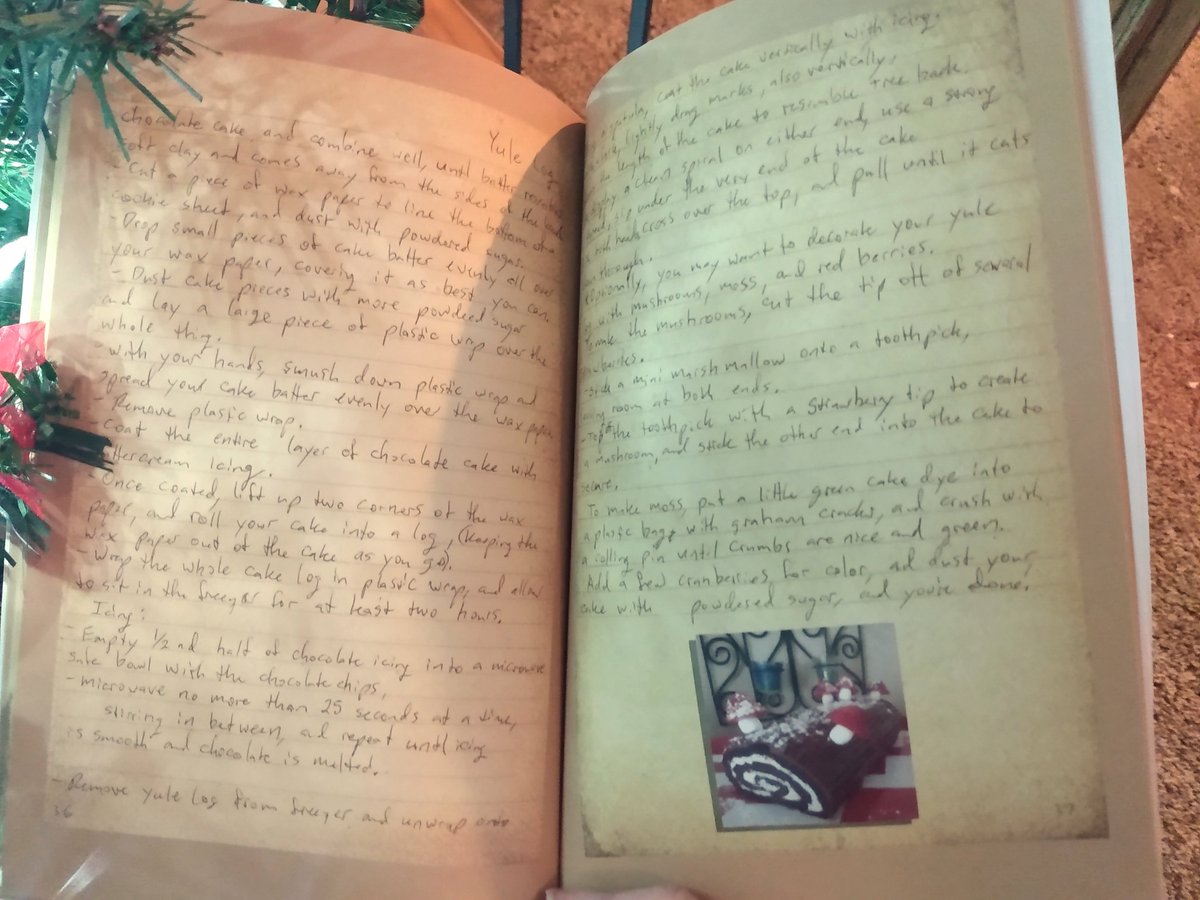 Yule Log
chocolate cake and combine well, until batter resembles
soft clay and comes away from the sides of the bowl
- Cut a piece of wax paper to line the bottom of a
cookie sheet, and dust with powdered sugar.
- Drop small pieces of cake batter evenly all over
your wax paper, covering it as best you can.
- Dust cake pieces with more powdered sugar
and lay a large piece of plastic wrap over the
whole thing.
- with your hands, smush down plastic wrap and
spread your cake batter evenly over the wax paper
- Remove plastic wrap.
coat the entire layer of chocolate cake with
Buttercream Icing.
- Once coated, lift up two corners of the wax
paper, and roll your cake into a log, (keeping the
wax paper out of the cake as you go).
- Wrap the whole cake log in plastic wrap, and allow
to sit in the freezer for at least two hours.
Icing:
- Empty 1/2 nd half of chocolate icing into a microwave
safe bowl with the chocolate chips,
- microwave no more than 25 seconds at a time,
stirring in between, and repeat until icing
is smooth and chocolate is melted.
- Remove Yule Log from freezer and unwrap onto
36
spatula, coat the cake vertically with icing.
lightly drag marks, also vertically,
the length of the cake to resemble tree bark.
a clean spiral on either end, use a strong
slip under the very end of the cake
cross over the top, and pull until it cuts
through.
Optionally, you may want to decorate your yule
log with mushrooms, moss, and red berries.
To make the mushrooms, cut the tip off of several
strawberries.
- Stick a mini marshmallow onto a toothpick,
leaving room at both ends.
- Top off the toothpick with a strawberry tip to create
a mushroom, and stick the other end into the cake to
secure.
To make moss, put a little green cake dye into
a plastic bagg with graham cracks, and crush with
a rolling pin until crumbs are nice and green.
Add a few cranberries for color, ad dust your
cake with powdered sugar, and you're done.
37